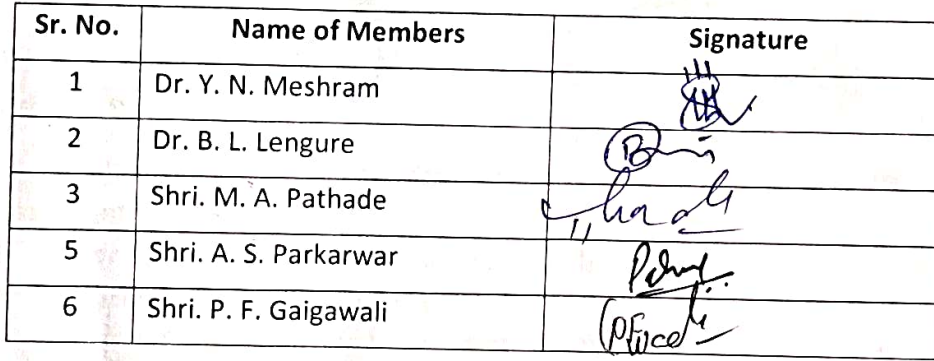 Sr. No. Name of Members Signature
1 Dr. Y. N. Meshram
2 Dr. B. L. Lengure
3 Shri. M. A. Pathade
5 Shri. A. S. Parkarwar
6 Shri. P. F. Gaigawali